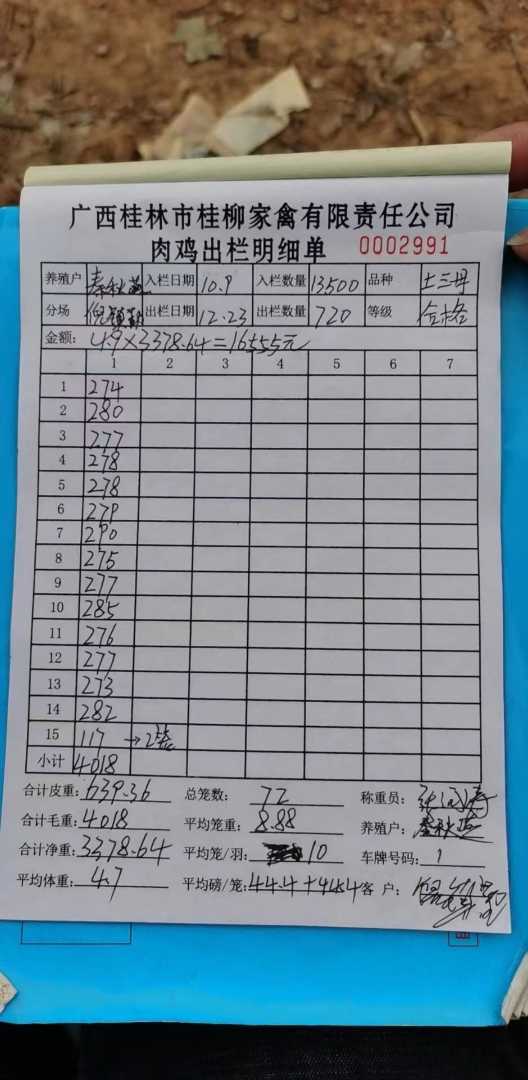 广西桂林市桂柳家禽有限责任公司
肉鸡出栏明细单 0002991
养殖户 秦秋 入栏日期 10.9 入栏数量 13500 品种 土三母
分场 倪 出栏日期 12.23 出栏数量 720 等级 合格
金额: 4.9×3378.64=16555元
1 2 3 4 5 6 7
1 274
2 280
3 277
4 278
5 278
6 279
7 290
8 275
9 277
10 285
11 276
12 277
13 273
14 282
15 117 →2
小计 4018
合计皮重: 639.36 总笼数: 72 称重员: 张
合计毛重: 4018 平均笼重: 8.88 养殖户: 秦秋
合计净重: 3378.64 平均笼/羽: 10 车牌号码: 1
平均体重: 4.7 平均磅/笼: 44.4+44.4 客 户: